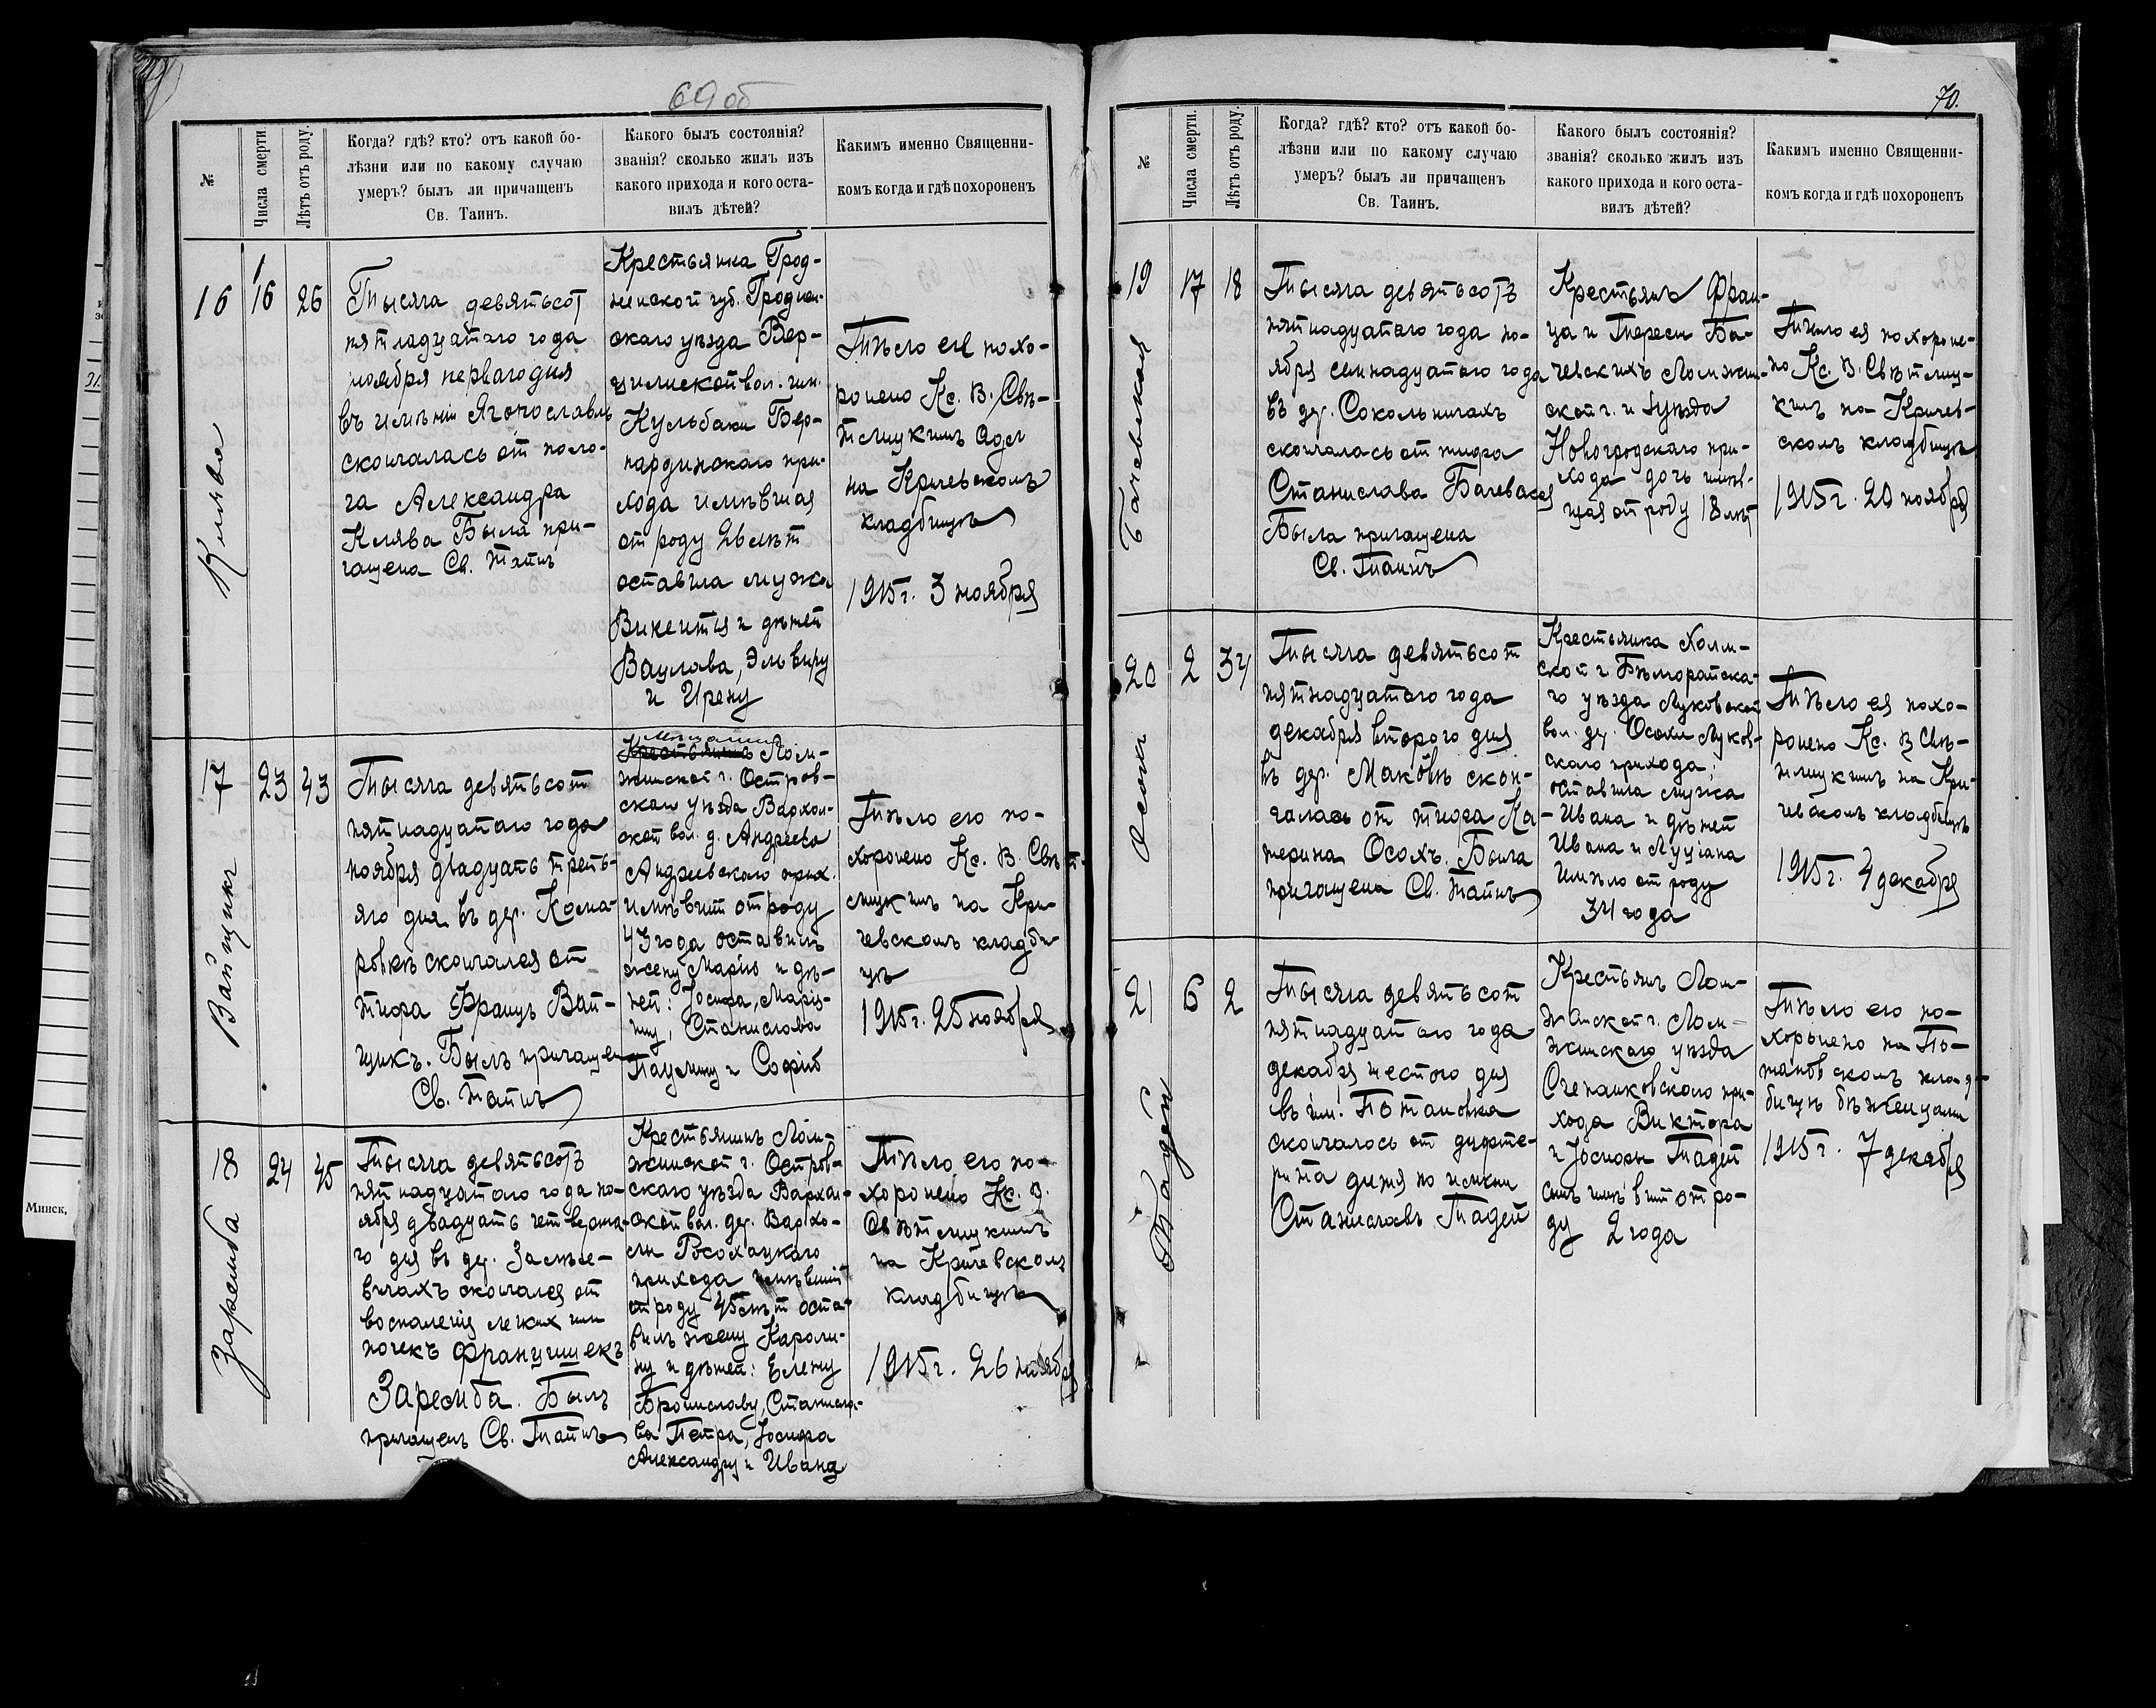 69 об
№
Числа смерти.
Лѣтъ отъ роду.
Когда? гдѣ? кто? отъ какой бо-
лѣзни или по какому случаю
умеръ? былъ ли причащенъ
Св. Таинъ.
Какого былъ состоянія?
званія? сколько жилъ изъ
какого прихода и кого оста-
вилъ дѣтей?
Какимъ именно Священни-
комъ когда и гдѣ похороненъ
16
Клява
1
16
26
Тысяча девятьсот
пятнадцатого года
ноября перваго дня
въ имѣніи
скончалась от поло-
га Александра
Клява Была при-
чащена Св. Таинъ
Крестьянка Грод-
ненской губ. Гроднен-
скаго уѣзда Вер-
цилиской вол. им.
Кульбаки Бер-
нардинскаго при-
хода имѣвшая
от роду 26 лѣт
оставила мужа
Викентія и дѣтей
Вацлава, Эльвиру
и Ирену
Тѣло ея похо-
ронено Кс. В. Свѣ-
тлицкимъ
на Кричевскомъ
кладбищѣ
1915 г. 3 ноября
17
Ванщикъ
23
43
Тысяча девятьсот
пятнадцатаго года
ноября двадцать треть-
яго дня въ дер. Кома-
ровкѣ скончался от
тифа Францъ Ван-
щикъ. Былъ причащен
Св. Таинъ
Мѣщанинъ
Крестьянинъ Лом-
жинской г. Остров-
скаго уѣзда Вархол-
ской вол. д. Андреево
Андреевскаго прих.
имѣвшій от роду
43 года оставилъ
жену Марію и дѣ-
тей: Іосифа, Марі-
ну, Станислава
Паулину и Софію
Тѣло его по-
хоронено Кс. В. Свѣт-
лицкимъ на Кри-
чевскомъ кладби-
щѣ
1915 г. 25 ноября
18
Заремба
24
45
Тысяча девятьсотъ
пятнадцатого года но-
ября двадцать четверта-
го дня въ дер.
скончался от
воспаленія легких или
почекъ Францишекъ
Заремба. Былъ
причащенъ Св. Таинъ
Крестьянинъ Лом-
жинской г. Остров-
скаго уѣзда Вархол-
ской вол. дер. Вархо-
лы Росохацкаго
прихода имѣвшій
от роду 45 лѣт оста-
вилъ жену Кароли-
ну и дѣтей: Елену
Брониславу, Станисла-
ва Петра, Іосифа
Александру и Ивана
Тѣло его по-
хоронено Кс. В.
Свѣтлицкимъ
на Кричевскомъ
кладбищѣ
1915 г. 26 ноября
Минск,
70.
№
Числа смерти.
Лѣтъ отъ роду.
Когда? гдѣ? кто? отъ какой бо-
лѣзни или по какому случаю
умеръ? былъ ли причащенъ
Св. Таинъ.
Какого былъ состоянія?
званія? сколько жилъ изъ
какого прихода и кого оста-
вилъ дѣтей?
Какимъ именно Священни-
комъ когда и гдѣ похороненъ
19
Бачевская
17
18
Тысяча девятьсотъ
пятнадцатаго года но-
ября семнадцатого года
въ дер. Сокольничахъ
скончалась от тифа
Станислава Бачевская
Была причащена
Св. Таинъ
Крестьянъ Фран-
ца и Тересы Ба-
чевскихъ Ломжин-
ской г. и уѣзда
Новогродскаго при-
хода дочь имѣв-
шая от роду 18 лѣт
Тѣло ея похороне-
но Кс. В. Свѣтлиц-
кимъ на Кричев-
скомъ кладбищѣ
1915 г. 20 ноября
20
Осохъ
2
34
Тысяча девятьсот
пятнадцатаго года
декабря второго дня
въ дер. Маковѣ скон-
чалась от тифа Ка-
терина Осохъ. Была
причащена Св. Таинъ
Крестьянка Холм-
ской г. Бѣлгорайска-
го уѣзда Луковской
вол. дер. Осохи Луков-
скаго прихода;
оставила мужа
Ивана и дѣтей
Ивана и Луціана
Имѣла от роду
34 года
Тѣло ея похо-
ронено Кс. В Свѣ-
тлицкимъ на Кри-
чевскомъ кладбищѣ
1915 г. 4 декабря
21
Тадей
6
2
Тысяча девятьсот
пятнадцатого года
декабря шестого дня
въ им. Потановка
скончалось от дифте-
рита дитя по имени
Станиславъ Тадей
Крестьянъ Лом-
жинской г. Лом-
жинскаго уѣзда
при-
хода Виктора
и Іосифы Тадей
сынъ имѣвшій от ро-
ду 2 года
Тѣло его по-
хоронено на По-
тановскомъ клад-
бищѣ бѣженцами
1915 г. 7 декабря